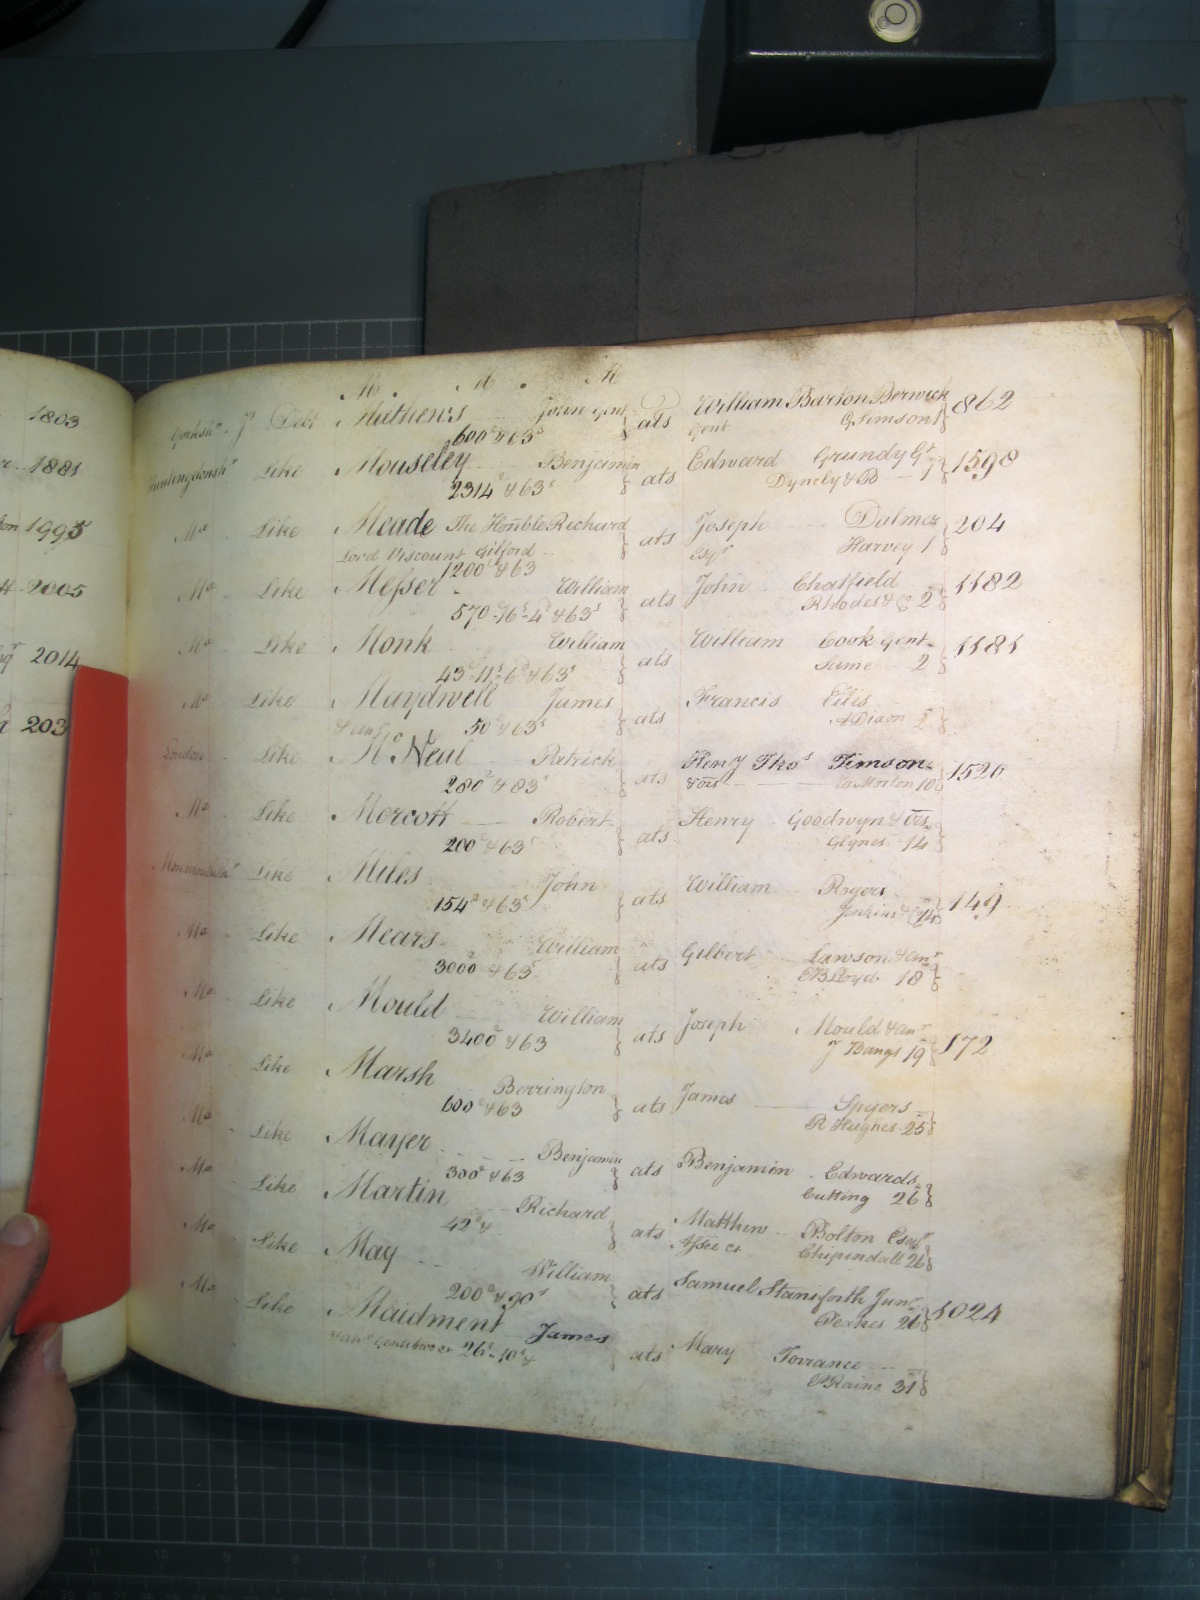 1803
1881
1995
2005
2014
203
M. M. M
Yorksh.r J.t Debt Mathews John Gent } ats William Barton Berwick } 862
600£ & 63s Gent G. Simson 1
Huntingdonsh.r Like Mouseley Benjamin } ats Edward Grundy G.t } 1598
2314£ & 63s Dynely & B 1
Mx Like Meade The Honble Richard } ats Joseph Dalmer } 204
Lord Viscount Gilford Esq.r Harvey 1
1200£ & 63
Mx Like Messer William } ats John Chatfield } 1182
570-16s-4d & 63s Rhodes & Co 2
Mx Like Monk William } ats William Cook Gent } 1181
43£-11s-6d & 63s Same 2
Mx Like Maydwell James } ats Francis Ellis }
& an.r 50£ & 63s A Dixon 2
London Like McNeal Patrick } ats Henry Thos Timson } 1520
280£ & 83s & ors Co Morton 10
Mx Like Morcott Robert } ats Henry Goodwyn & ors }
200£ & 63s Glynes 14
Monmouthsh.r Like Miles John } ats William Rogers } 149
154£ & 63s Jenkins & Co 14
Mx Like Mears William } ats Gilbert Lawson & an.r }
3000£ & 63s E B Lloyd 18
Mx Like Mould William } ats Joseph Mould & an.r } 172
3400£ & 63 J Bangs 19
Mx Like Marsh Berrington } ats James Spyers }
600£ & 63 R Hughes 25
Mx Like Mayer Benjamin } ats Benjamin Edwards }
300£ & 63 Cutting 26
Mx Like Martin Richard } ats Matthew Bolton Esq.r }
42£ & Assee &c Chipindall 26
Mx Like May William } ats Samuel Staniforth Jun.r } 1024
200£ & 90s Peakes 26
Mx Like Maidment James } ats Mary Torrance }
& an.r 26£-10s & P Raine 31